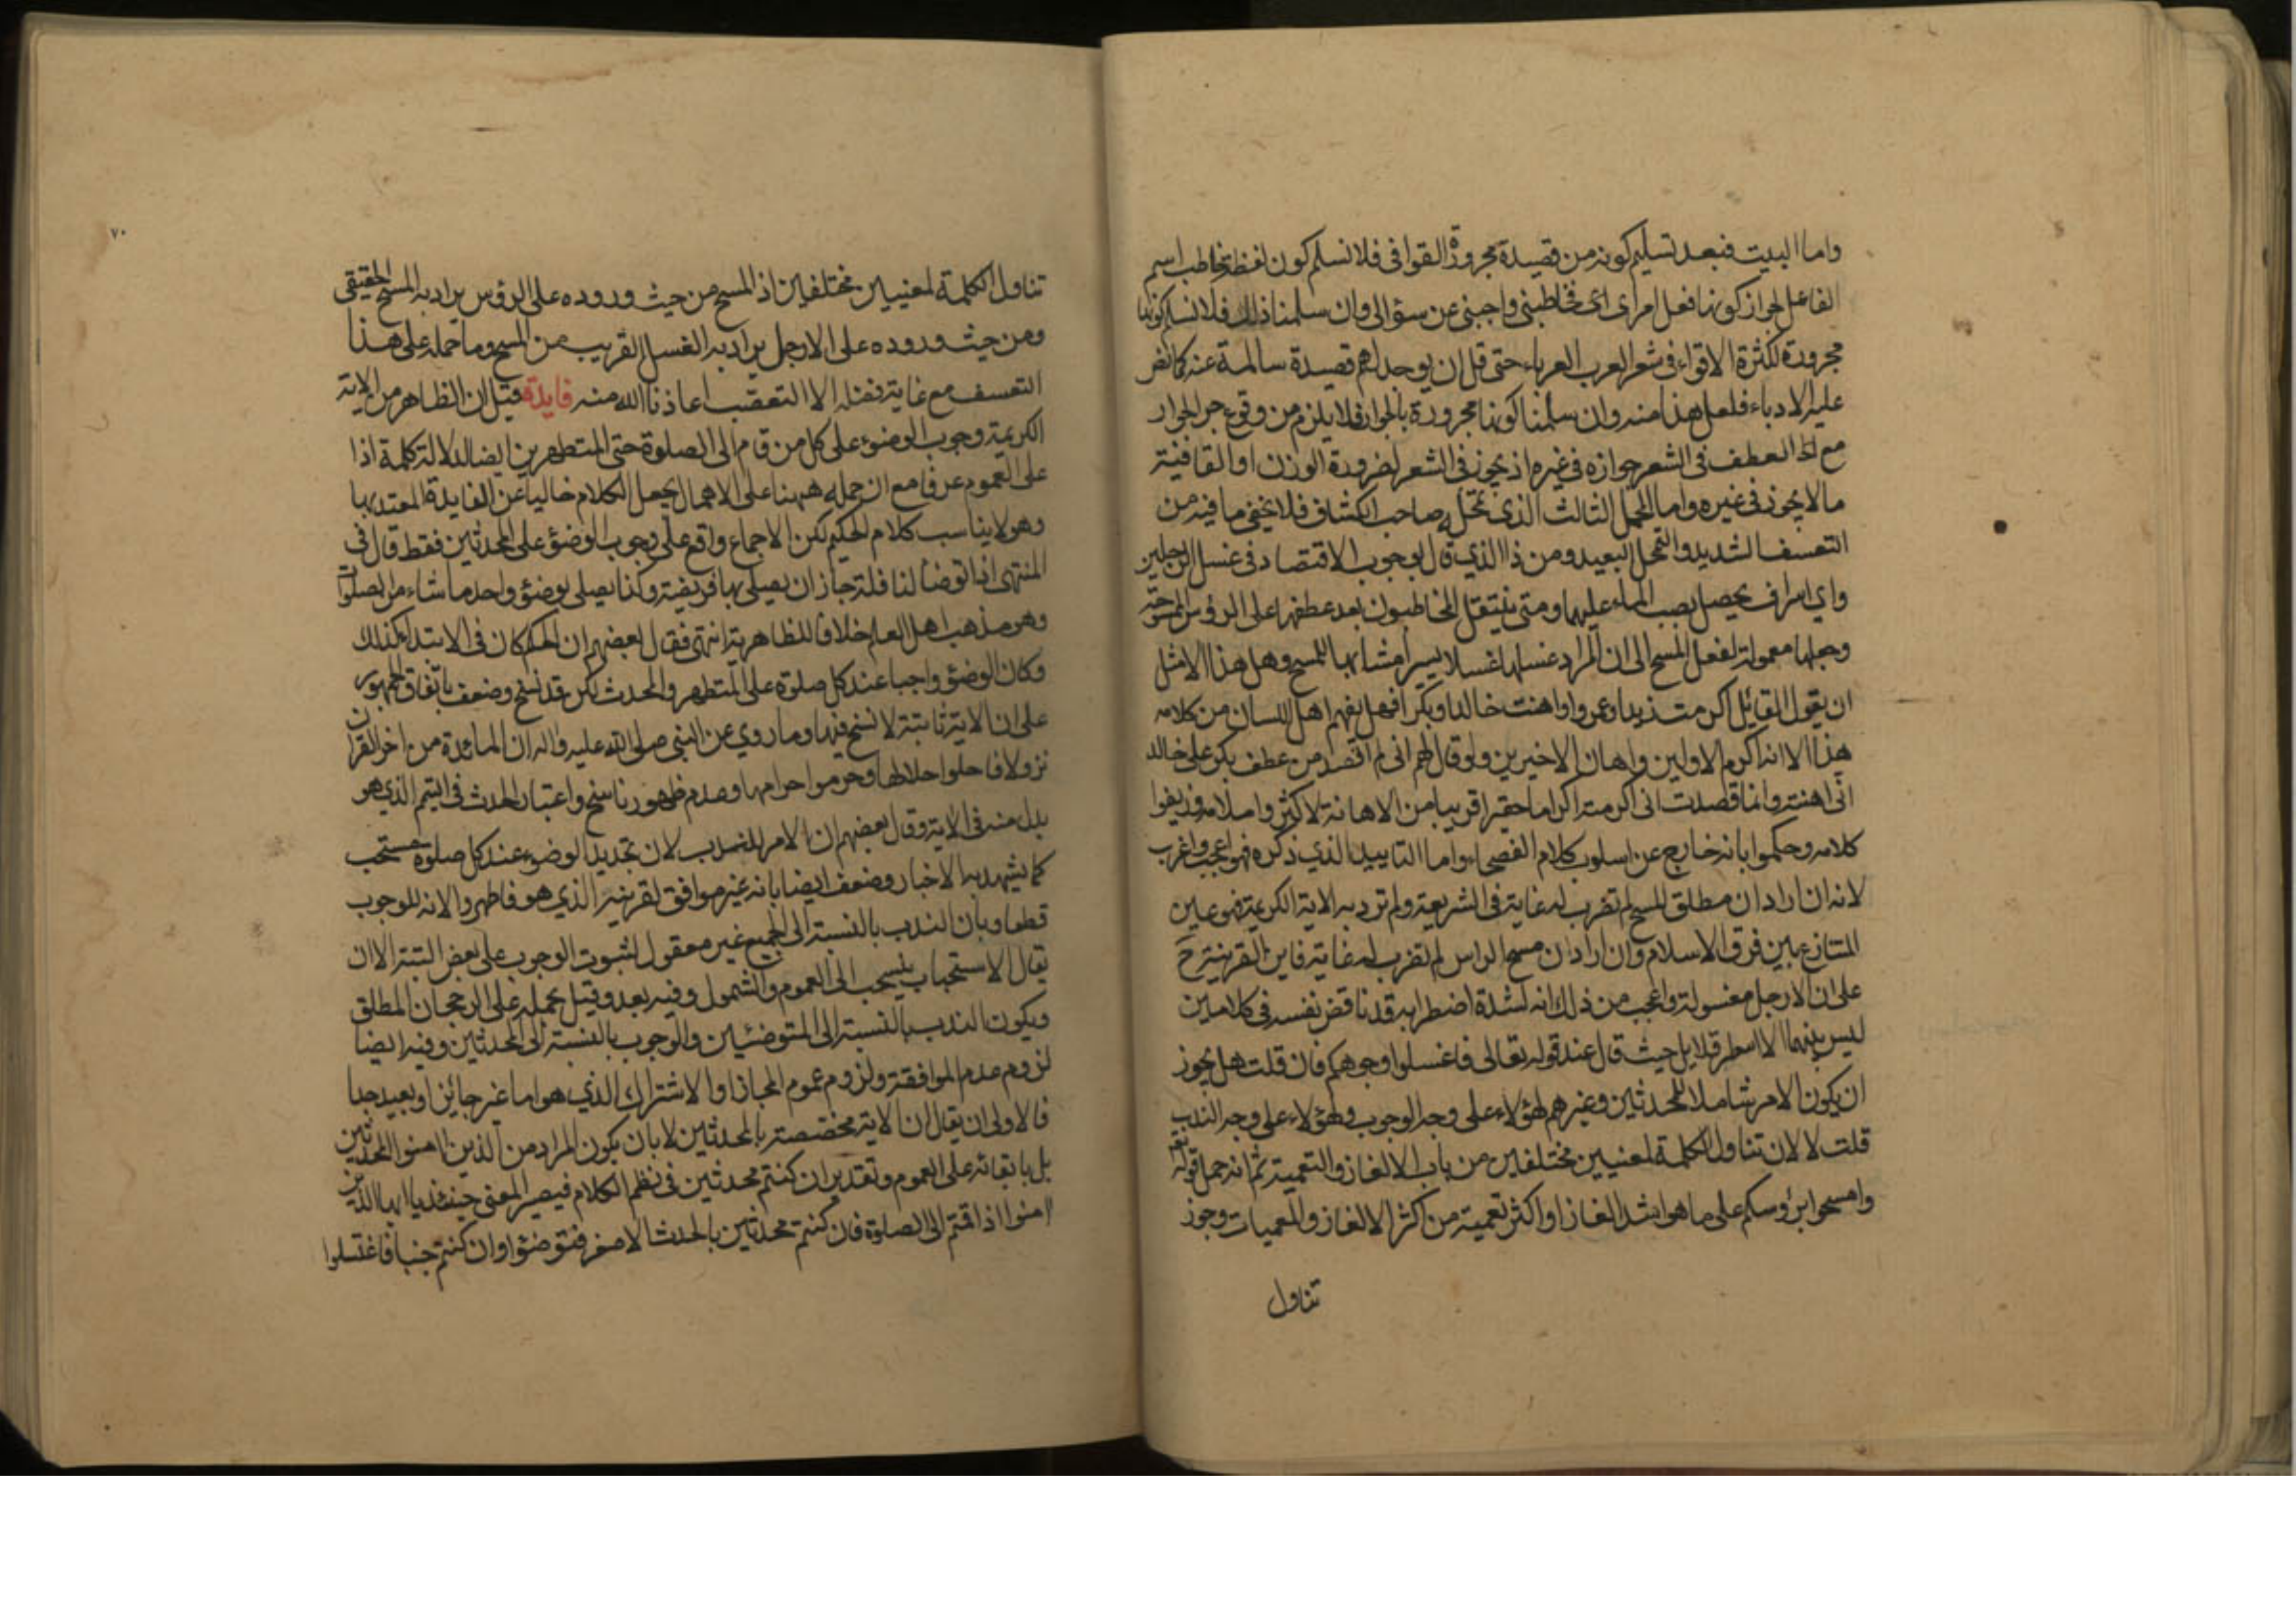 واما البيت فبعد تسليم كونه من قصيدة مجرورة القوافى فلا نسلم كون لفظة خاطب اسم
الفاعل لجواز كونها فعل امر اى اى خاطبنى واجبنى عن سؤالى وان سلمنا ذلك فلا نسلم كونها
مجرورة لكثرة الاقواء فى شعر العرب العرباء حتى قل ان يوجد لهم قصيدة سالمة عنه كما نص
عليه الادباء فلعل هذا منه وان سلمنا كونها مجرورة بالجوار فلا يلزم من وقوع جر الجوار
مع العطف فى الشعر جوازه فى غيره اذ يجوز فى الشعر لضرورة الوزن او القافية
ما لا يجوز فى غيره واما المحمل الثالث الذى تمحل له صاحب الكشاف فلا يخفى ما فيه من
التعسف الشديد والتمحل البعيد ومن ذا الذي قال بوجوب الاقتصاد فى غسل الرجلين
واي اسراف يحصل بصب الماء عليهما ومتى ينتقل المخاطبون بعد عطفها على الرؤس الممسوحة
وجعلها معمولة لفعل المسح الى ان المراد غسلها غسلا يسيرا مشابها للمسح وهل هذا الا مثل
ان يقول القائل اكرمت زيدا وعمروا واهنت خالدا وبكرا فهل يفهم اهل اللسان من كلامه
هذا الا انه اكرم الاولين واهان الاخيرين ولو قال لهم انى لم اقصد من عطف بكر على خالد
انى اهنته وانما قصدت انى اكرمته اكراما حقيرا قريبا من الاهانة لاكثروا ملامه وزيفوا
كلامه وحكموا بانه خارج عن اسلوب كلام الفصحاء واما التاييد الذي ذكره فهو اعجب واغرب
لانه ان اراد ان مطلق المسح لم تضرب له غاية فى الشريعة ولم ترد به الاية الكريمة فهو عين
المتنازع بين فرق الاسلام وان اراد ان مسح الراس لم تضرب له غاية فاين القرينة ح
على ان الارجل مغسولة واعجب من ذلك انه لشدة اضطرابه قد ناقض نفسه فى كلامين
ليس بينهما الا اسطر قلايل حيث قال عند قوله تعالى فاغسلوا وجوهكم فان قلت هل يجوز
ان يكون الامر شاملا للمحدثين وغيرهم لهؤلاء على وجه الوجوب ولهؤلاء على وجه الندب
قلت لا لان تناول الكلمة لمعنيين مختلفين من باب الالغاز والتعمية ثم انه حمل قوله تعالى
وامسحوا برؤسكم على ما هو اشد الغازا واكثر تعمية من اكثر الالغاز والمعميات وجوز
تناول
٧٠
تناول الكلمة لمعنيين مختلفين اذ المسح من حيث وروده على الرؤس يراد به المسح الحقيقى
ومن حيث وروده على الارجل يراد به الغسل القريب من المسح وما حمله على هذا
التعسف مع غاية فضله الا التعصب اعاذنا الله منه فايدة قيل ان الظاهر من الاية
الكريمة وجوب الوضوء على كل من قام الى الصلوة حتى المتطهرين ايضا لدلالة كلمة اذا
على العموم عرفا مع ان حمله ههنا على الاهمال يجعل الكلام خاليا عن الفايدة المعتد بها
وهو لا يناسب كلام الحكيم لكن الاجماع واقع على وجوب الوضوء على المحدثين فقط قال فى
المنتهى اذا توضأ لنافلة جاز ان يصلى بها فريضة وكذا يصلى بوضوء واحد ما شاء من الصلوات
وهو مذهب اهل العلم خلافا للظاهرية انتهى فقال بعضهم ان الحكم كان فى الابتداء كذلك
وكان الوضوء واجبا عند كل صلوة على المتطهر والمحدث لكن قد نسخ وضعف باتفاق الجمهور
على ان الاية ثابتة لا نسخ فيها وما روي عن النبي صلى الله عليه واله ان المائدة من اخر القران
نزولا فاحلوا حلالها وحرموا حرامها وعدم ظهور ناسخ واعتبار الحدث فى التيمم الذي هو
بدل منه فى الاية وقال بعضهم ان الامر للندب لان تجديد الوضوء عند كل صلوة مستحب
كما يشهد به الاخبار وضعف ايضا بانه غير موافق لقرينه الذي هو فاطهروا لانه للوجوب
قطعا وبان الندب بالنسبة الى الجميع غير معقول لثبوت الوجوب على بعض البتة الا ان
يقال الاستحباب ينسحب الى العموم والشمول وفيه بعد وقيل بحمله على الرجحان المطلق
ويكون الندب بالنسبة الى المتوضئين والوجوب بالنسبة الى المحدثين وفيه ايضا
لزوم عدم الموافقة ولزوم عموم المجاز او الاشتراك الذي هو اما غير جائز او بعيد جدا
فالاولى ان يقال ان الاية مخصصة بالمحدثين لا بان يكون المراد من الذين امنوا المحدثين
بل بابقائه على العموم وتقدير ان كنتم محدثين فى نظم الكلام فيصير المعنى حينئذ يا ايها الذين
امنوا اذا قمتم الى الصلوة فان كنتم محدثين بالحدث الاصغر فتوضؤا وان كنتم جنبا فاغتسلوا